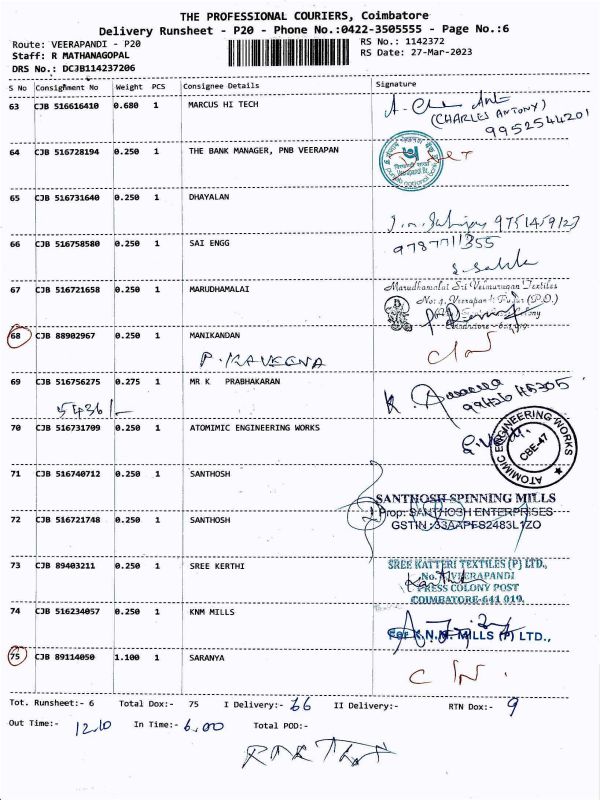 THE PROFESSIONAL COURIERS, Coimbatore
Delivery Runsheet - P20 - Phone No.:0422-3505555 - Page No.:6
Route: VEERAPANDI - P20
RS No.: 1142372
Staff: R MATHANAGOPAL
RS Date: 27-Mar-2023
DRS No.: DCJB114237206
S No Consignment No Weight PCS Consignee Details Signature
63 CJB 516616410 0.680 1 MARCUS HI TECH
(CHARLES ANTONY)
9952544201
64 CJB 516728194 0.250 1 THE BANK MANAGER, PNB VEERAPAN
65 CJB 516731640 0.250 1 DHAYALAN
9751459123
66 CJB 516758580 0.250 1 SAI ENGG
9787711355
67 CJB 516721658 0.250 1 MARUDHAMALAI
Marudhamalai Sri Velmurugan Textiles
68 CJB 88902967 0.250 1 MANIKANDAN
P. KAVEENA
69 CJB 516756275 0.275 1 MR K PRABHAKARAN
5436/-
70 CJB 516731709 0.250 1 ATOMIMIC ENGINEERING WORKS
ATOMIMIC ENGINEERING WORKS
CBE-47
71 CJB 516740712 0.250 1 SANTHOSH
SANTHOSH SPINNING MILLS
72 CJB 516721748 0.250 1 SANTHOSH
Prop: SANTHOSH ENTERPRISES
GSTIN :33AAPES2483L1ZO
73 CJB 89403211 0.250 1 SREE KERTHI
SREE KATTERI TEXTILES (P) LTD.,
VEERAPANDI
PRESS COLONY POST
COIMBATORE-641 019.
74 CJB 516234057 0.250 1 KNM MILLS
For K.N.M. MILLS (P) LTD.,
75 CJB 89114050 1.100 1 SARANYA
Tot. Runsheet:- 6 Total Dox:- 75 I Delivery:- 66 II Delivery:- RTN Dox:- 9
Out Time:- 12.10 In Time:- 6.00 Total POD:-